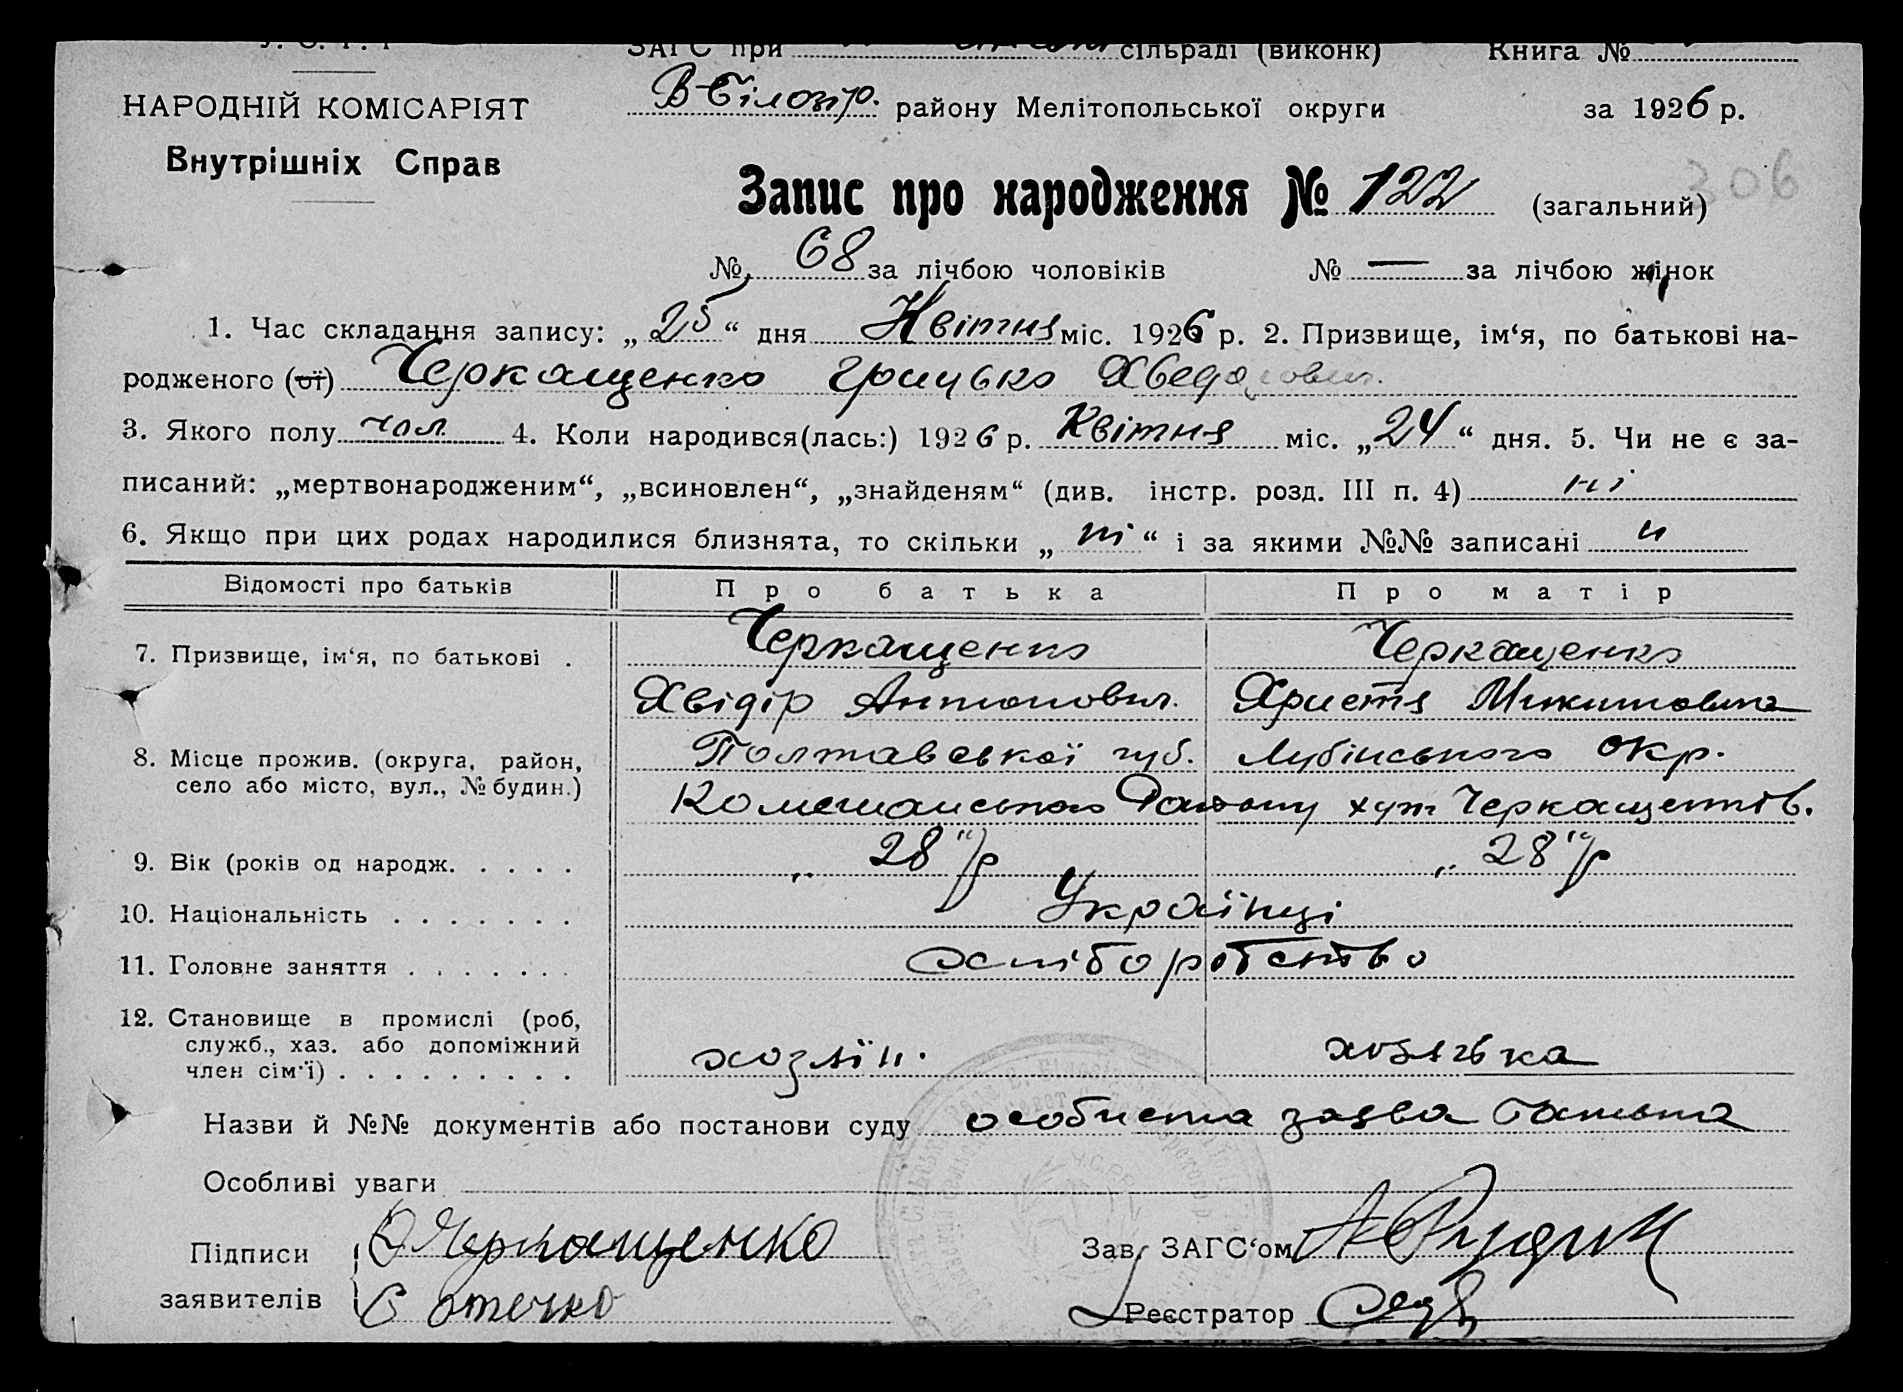 ЗАГС при сільраді (виконк) Книга №
НАРОДНІЙ КОМІСАРІЯТ В-Білозір. району Мелітопольської округи за 1926 р.
Внутрішніх Справ
306
Запис про народження № 122 (загальний)
№ 68 за лічбою чоловіків № — за лічбою жінок
1. Час складання запису: „25“ дня Квітня міс. 1926 р. 2. Призвище, ім‘я, по батькові на-
родженого (ої) Черкащенко Грицько Хведорович.
3. Якого полу чол 4. Коли народився(лась:) 1926 р. Квітня міс. „24“ дня. 5. Чи не є за-
писаний: „мертвонародженим“, „всиновлен“, „знайденям“ (див. інстр. розд. III п. 4) ні
6. Якщо при цих родах народилися близнята, то скільки „ ні “ і за якими №№ записані
Відомості про батьків Про батька Про матір
7. Призвище, ім‘я, по батькові . Черкащенко Черкащенко
Хвідір Антонович. Христя Микитовна
8. Місце прожив. (округа, район, Полтавської губ. Лубінського окр.
село або місто, вул., № будин.) Району хут Черкащенків.
9. Вік (років од народж. . . . . 28 р 28 р
10. Національність . . . . . . . Українці
11. Головне заняття . . . . . . . Хліборобство
12. Становище в промислі (роб,
служб., хаз. або допоміжний хозяїн. хозяйка
член сім‘ї) . . . . . . . . .
Назви й №№ документів або постанови суду особиста заява батька
Особливі уваги
Підписи Черкащенко Зав. ЗАГС‘ом
заявителів Реєстратор